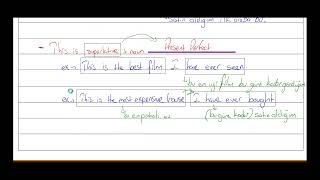 "Satın aldığım ilk araba bu.
- This is superlative + noun Present Perfect
ex:- This is the best film I have ever seen
bu en iyi film bu güne kadar gördüğüm
ex: This is the most expensive house I have ever bought
en pahalı ev (bu güne kadar) satın aldığım